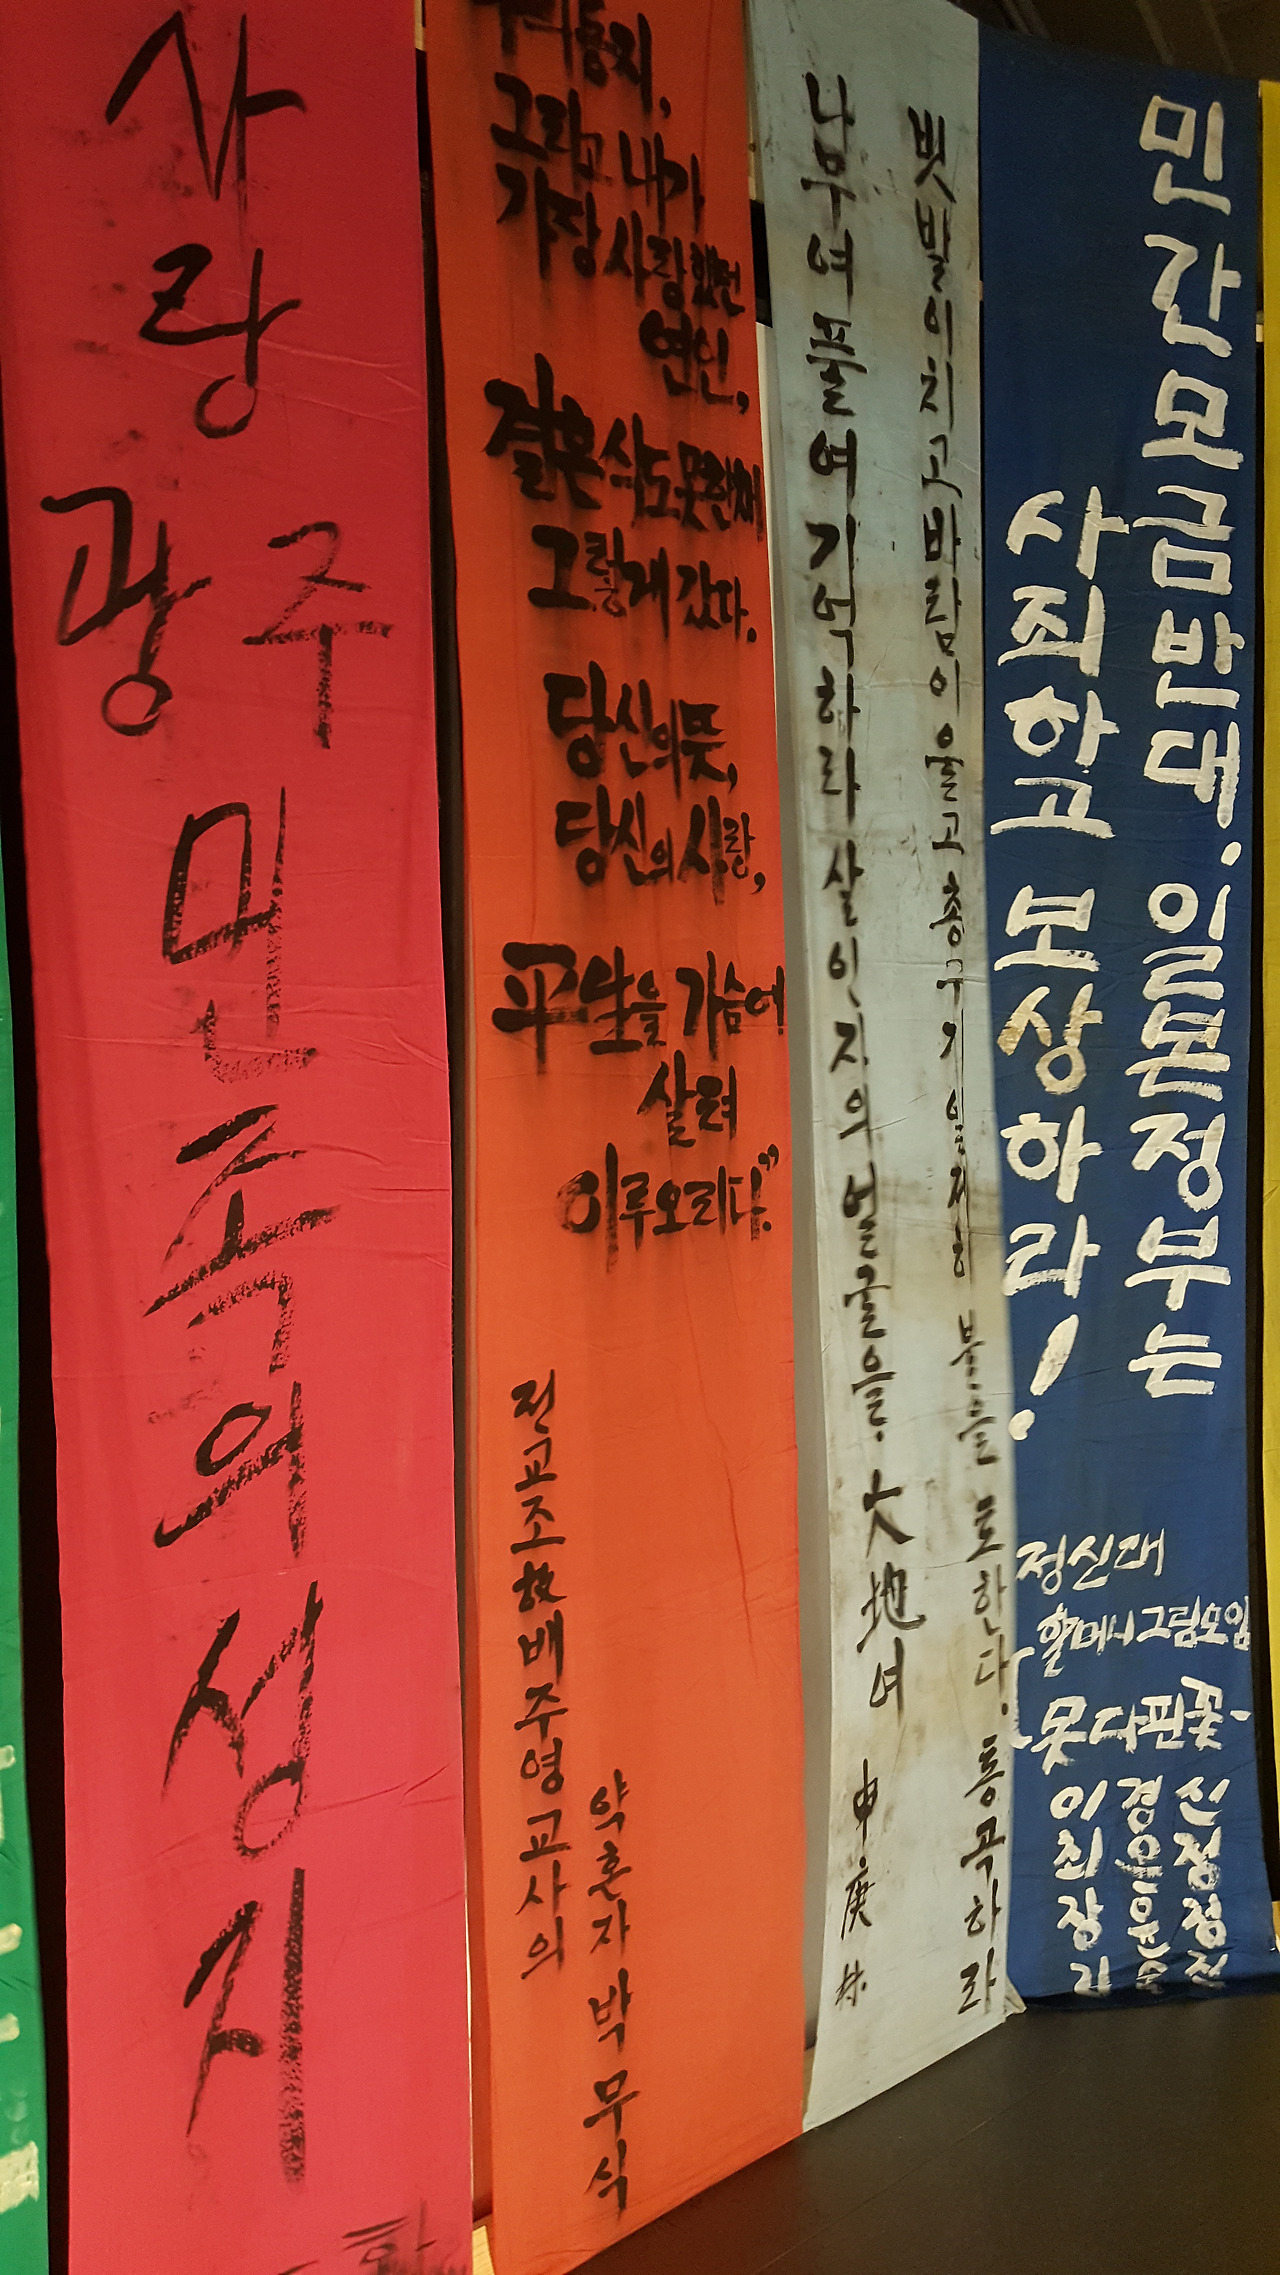 사랑
광주
민족의 성지
우리동지,
그리고 내가
가장 사랑했던
연인,
결혼식도 못한채
그렇게 갔다.
당신의 뜻,
당신의 사랑,
平生을 가슴에
살려
이루오리다."
전교조 故 배주영 교사의
약혼자 박무식
나무여 풀여 기억하라 살인자의 얼굴을. 大地여
申庚林
빗발이 치고 바람이 울고 총구가 일제히 불을 토한다. 통곡하라
민간모금반대. 일본정부는
사죄하고 보상하라!
정신대
할머니 그림모임
못다핀꽃
이 경 신
최 은 정
장 은 정